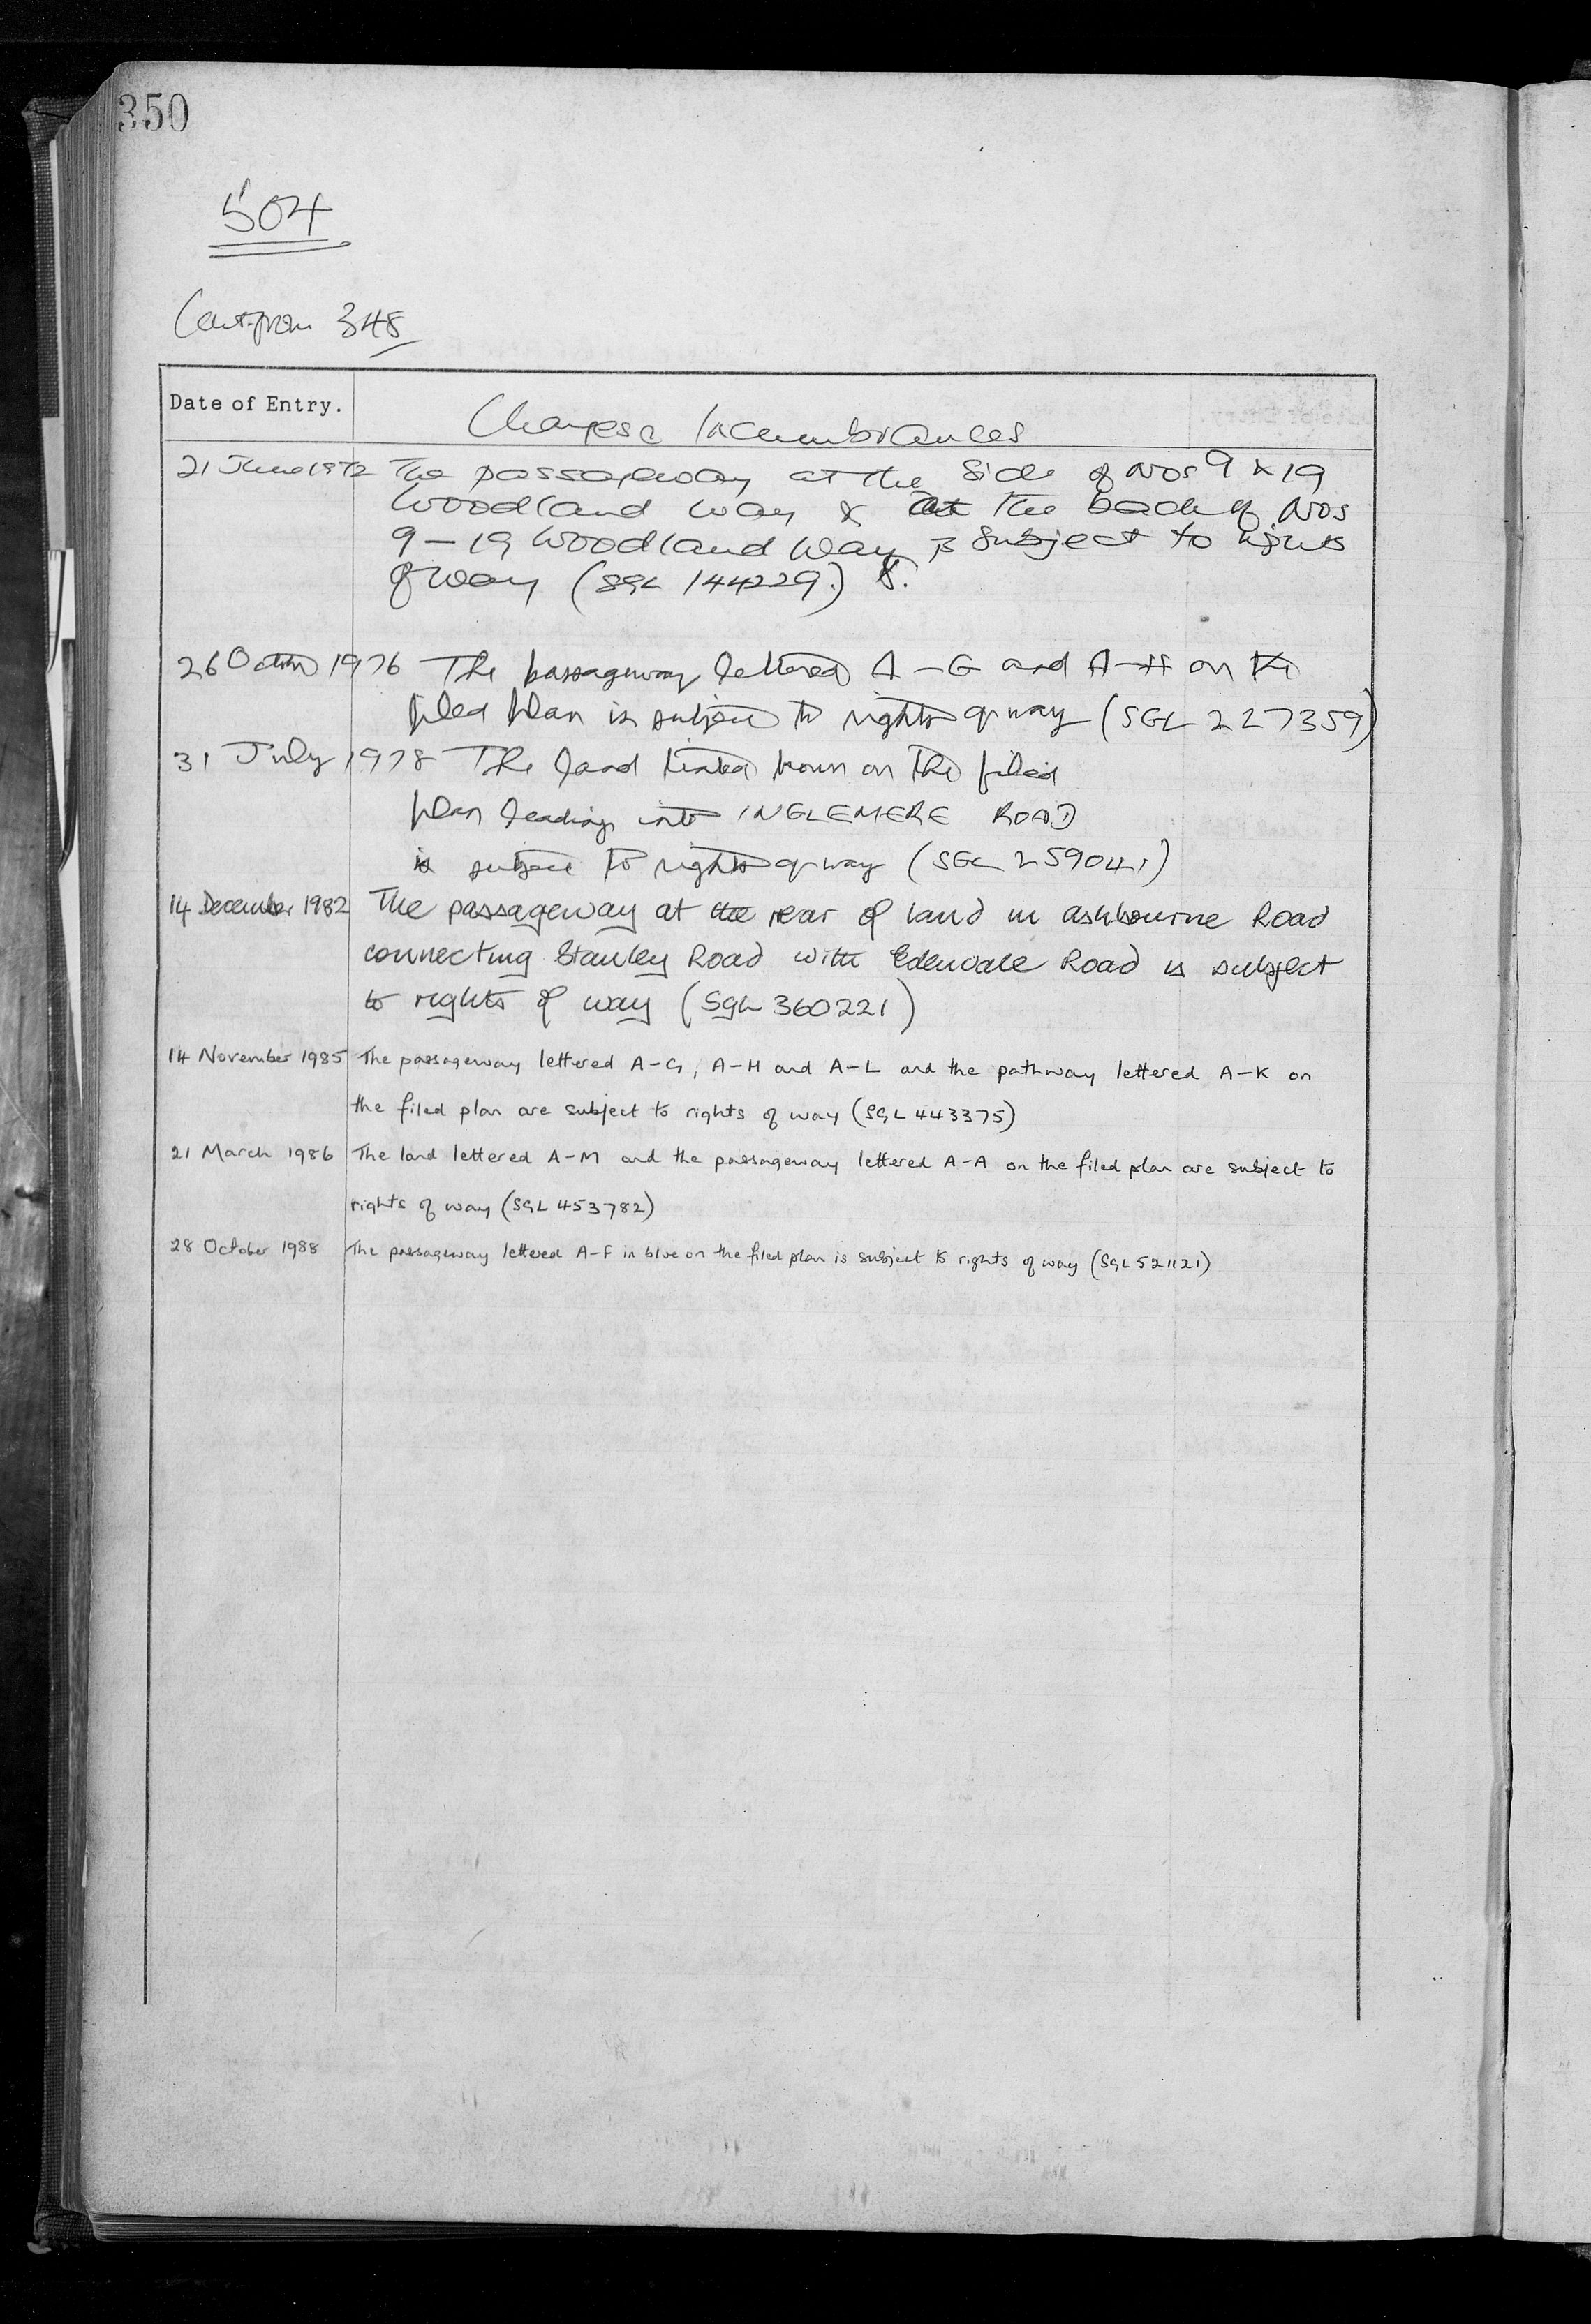 350
504
Cont. from 348
Date of Entry.
Charges & Incumbrances
21 June 1972 The passageway at the side of Nos 9 & 19
Woodland Way & at the back of Nos
9-19 Woodland Way is subject to rights
of way (SGL 144229)
26 October 1976 The passageway lettered A-G and A-H on the
filed plan is subject to rights of way (SGL 227359)
31 July 1978 The land tinted brown on the filed
plan leading into INGLEMERE ROAD
is subject to rights of way (SGL 259041)
14 December 1982 The passageway at the rear of land in Ashbourne Road
connecting Stanley Road with Edenvale Road is subject
to rights of way (SGL 360221)
14 November 1985 The passageway lettered A-G, A-H and A-L and the pathway lettered A-K on
the filed plan are subject to rights of way (SGL 443375)
21 March 1986 The land lettered A-M and the passageway lettered A-A on the filed plan are subject to
rights of way (SGL 453782)
28 October 1988 The passageway lettered A-F in blue on the filed plan is subject to rights of way (SGL 521121)